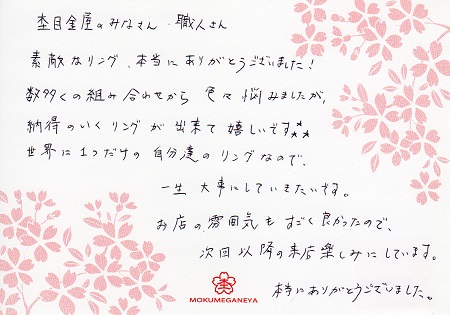 杢目金屋のみなさん、職人さん
素敵なリング、本当にありがとうございました!
数多くの組み合わせから色々悩みましたが、
納得のいくリングが出来て嬉しいです☆☆
世界に1つだけの自分達のリングなので、
一生大事にしていきたいです。
お店の雰囲気もすごく良かったので、
次回以降の来店楽しみにしています。
本当にありがとうございました。
MOKUMEGANEYA